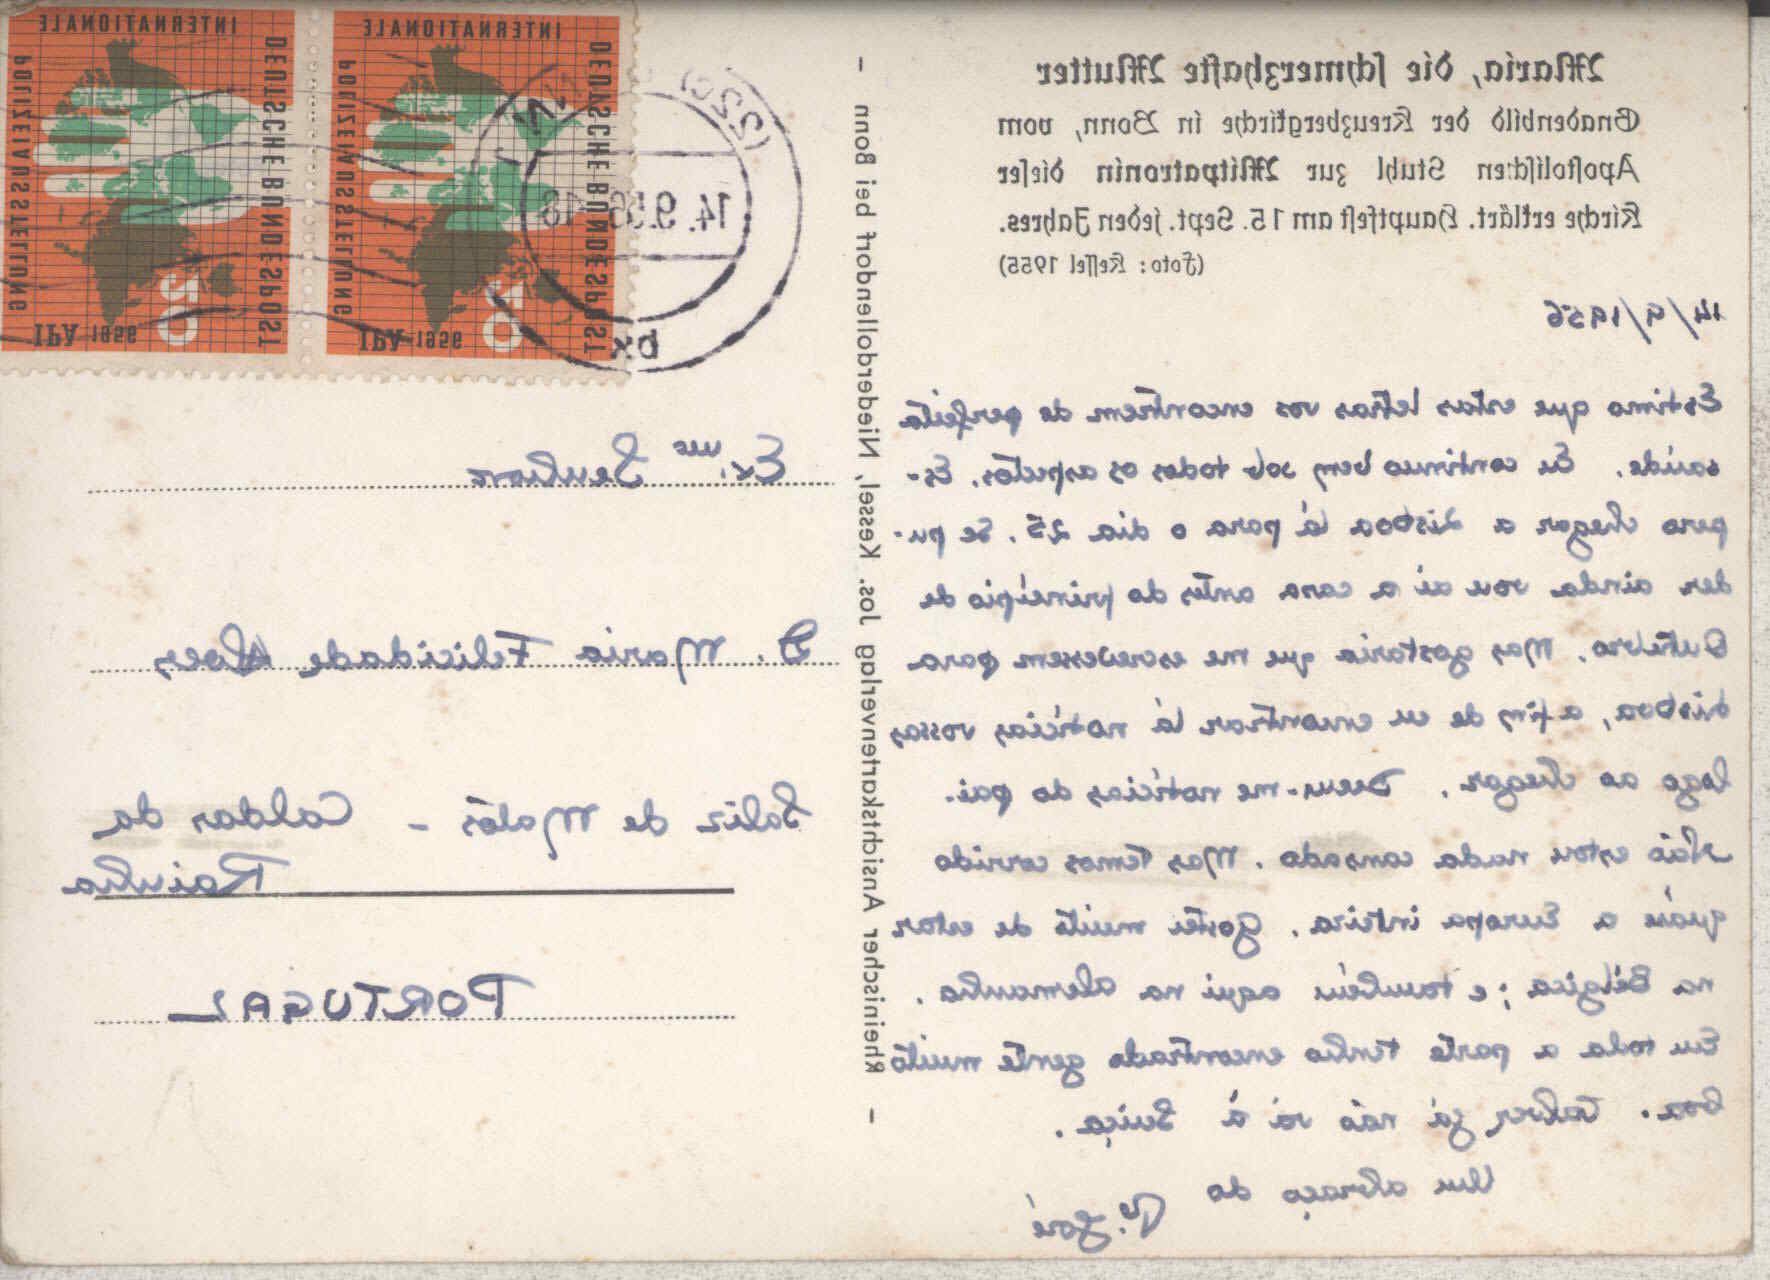 Maria, die schmerzhafte Mutter
Gnadenbild der Kreuzbergkirche in Bonn, vom
Apostolischen Stuhl zur Mitpatronin dieser
Kirche erklärt. Hauptfest am 15. Sept. jeden Jahres.
(Foto: Kessel 1955)
14/9/1956
Estimo que estas letras vos encontrem de perfeita
saúde. Eu continuo bem sob todos os aspectos. Es-
pero chegar a Lisboa lá para o dia 25. Se pu-
der ainda vou aí a casa antes do princípio de
Outubro. Mas gostaria que me escrevessem para
Lisboa, a fim de eu encontrar lá notícias vossas
logo ao chegar. Deem-me notícias do pai.
Não estou nada cansado. Mas temos corrido
quási a Europa inteira. Gostei muito de estar
na Bélgica; e também aqui na Alemanha.
Em toda a parte tenho encontrado gente muito
boa. Talvez já não vá à Suiça.
Um abraço do
P.e José
Rheinischer Ansichtskartenverlag Jos. Kessel, Niederdollendorf bei Bonn
DEUTSCHE BUNDESPOST
INTERNATIONALE
POLIZEIAUSSTELLUNG
IPA 1956
20
DEUTSCHE BUNDESPOST
INTERNATIONALE
POLIZEIAUSSTELLUNG
IPA 1956
20
(22c)
14.9.56-18
bx
Ex.ma Senhora
D. Maria Felicidade
Salir de Matos - Caldas da
Rainha
PORTUGAL